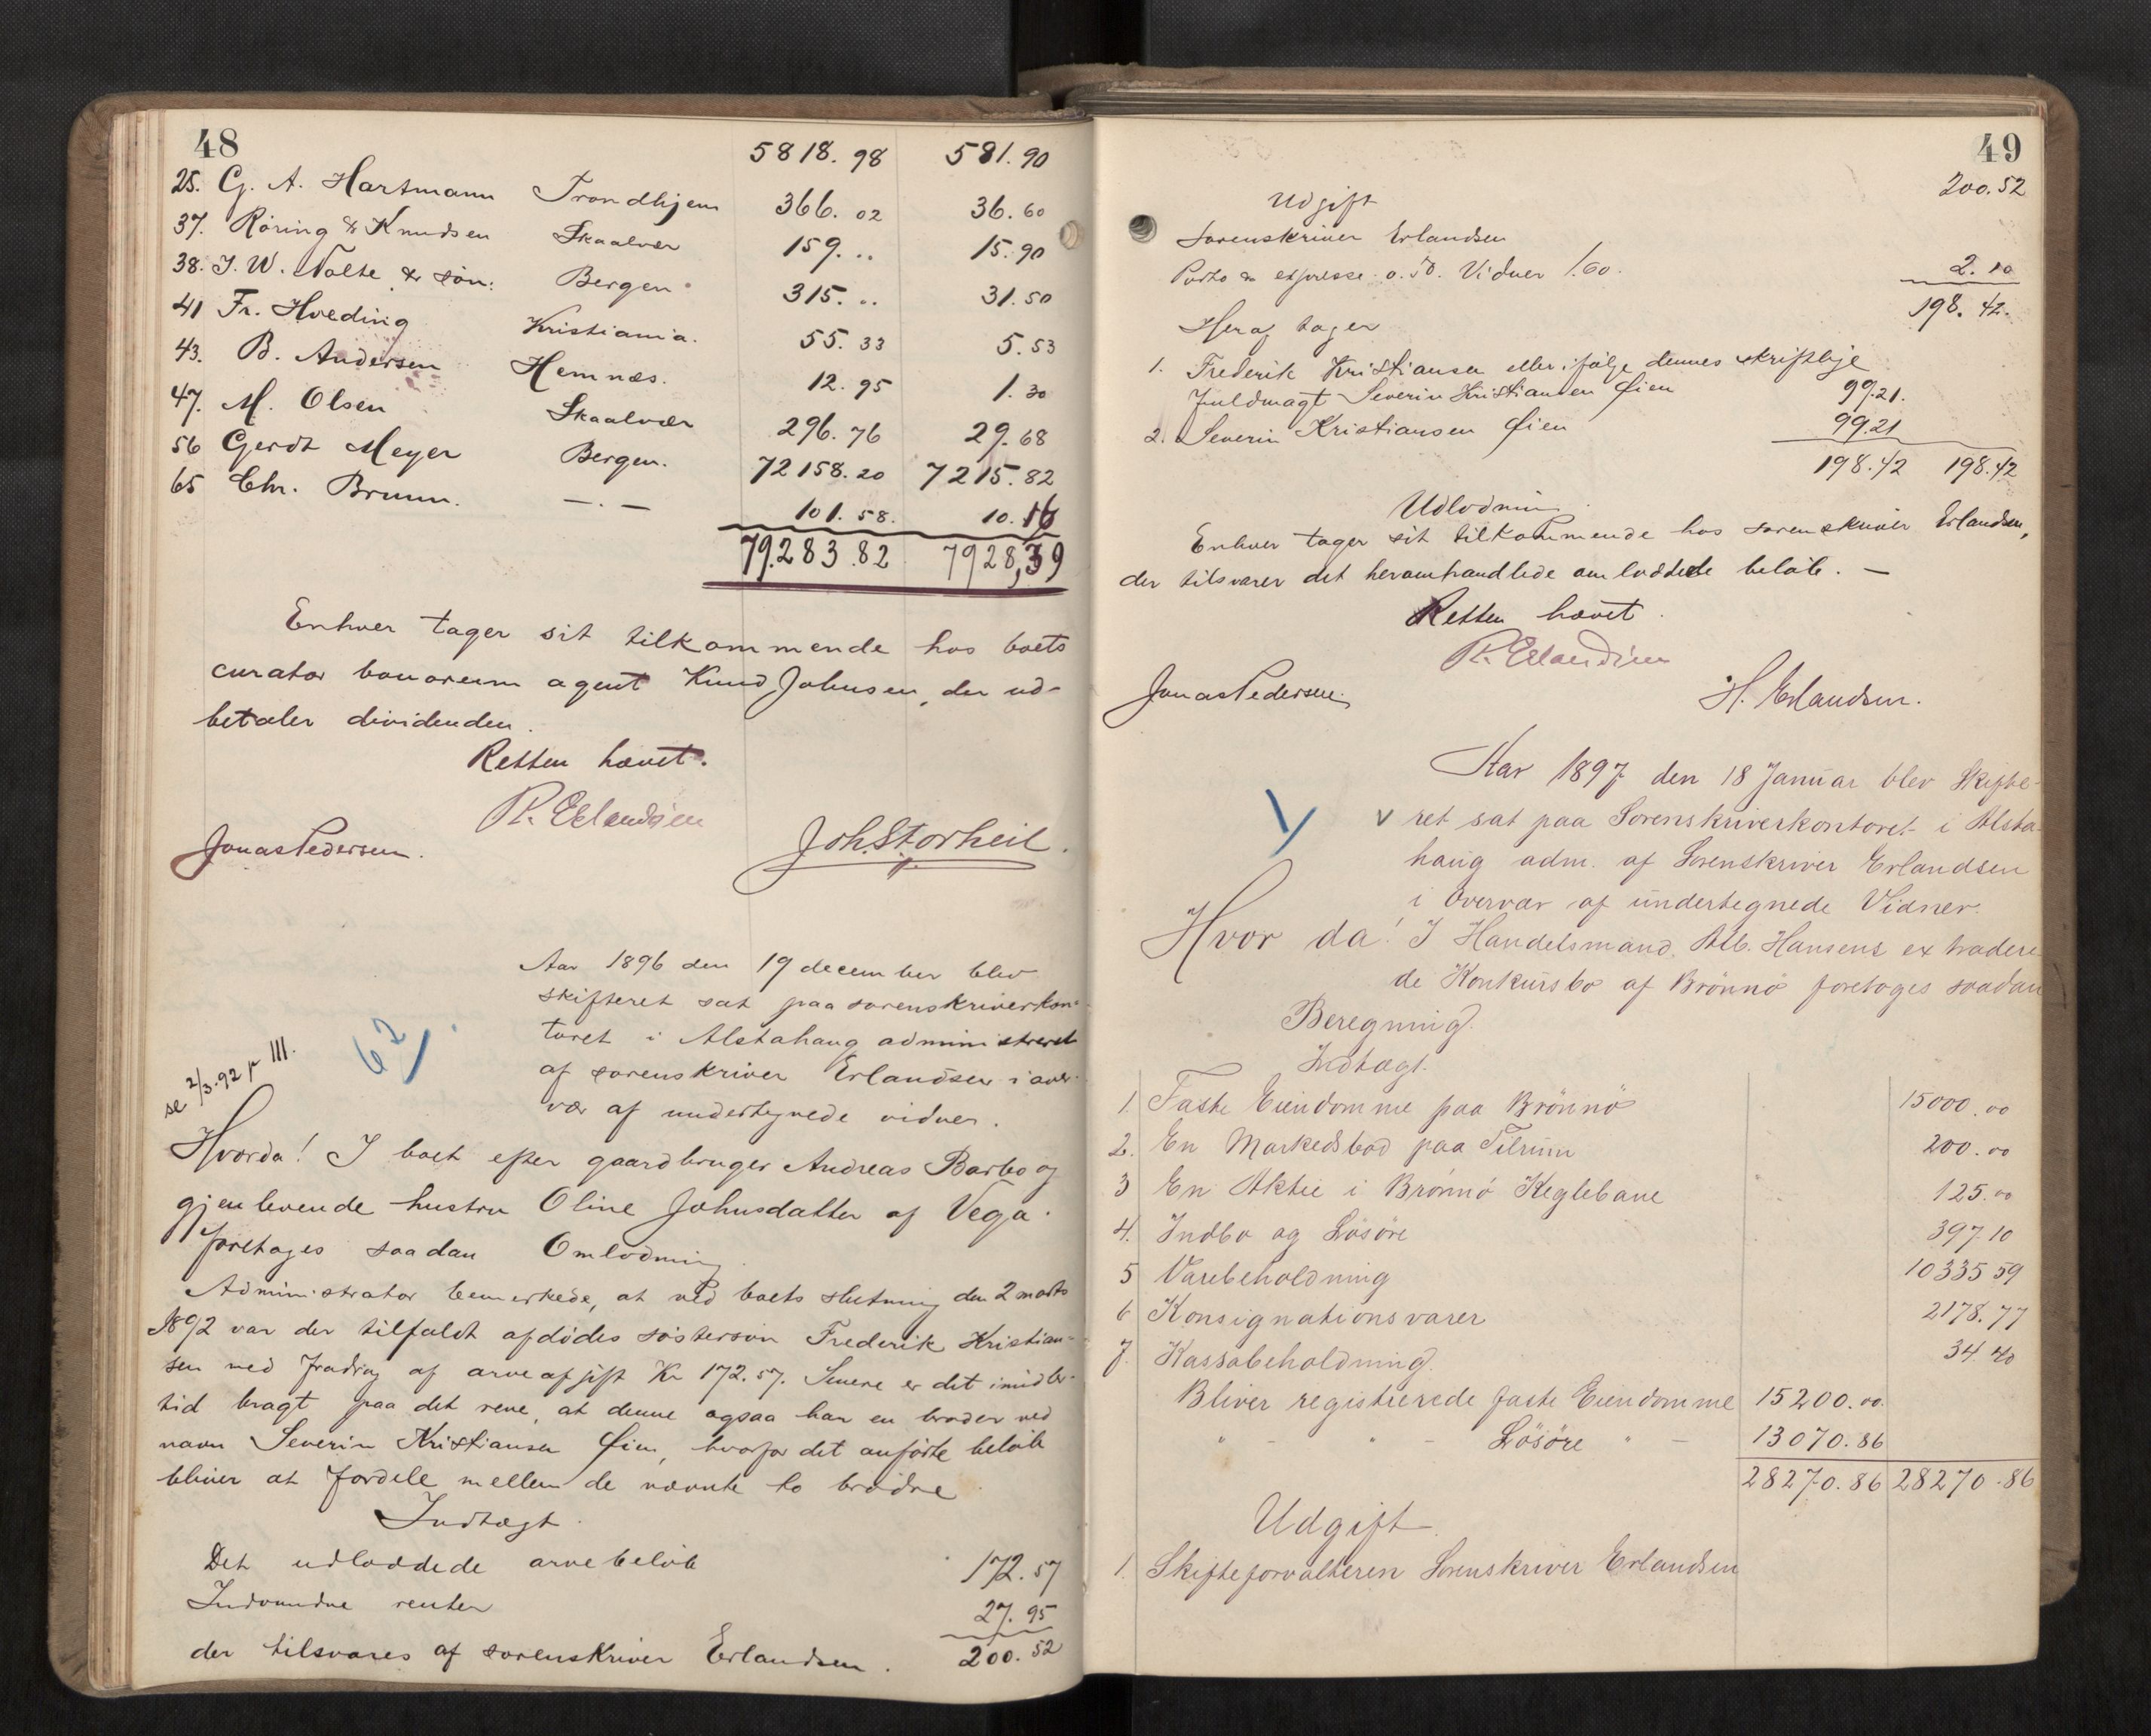 48
5818.98 581.90
25. G. A. Hartmann Trondhjem 366.02 36.60
37. Röring & Knudsen Skaalvær 159... 15.90
38. J. W. Nolte & Søn: Bergen 315... 31.50
41 Fr. Hveding Kristiania. 55.33 5.53
43. B. Andersen Hemnæs. 12.95 1.30
47. M. Olsen Skaalvær 296.76 29.68
56 Gerdt Meyer Bergen. 72158.20 7215.82
65 Chr. Bruun. —.— 101.58. 10.16
79.283.82 7928,39
Enhver tager sit tilkommende hos boets
curator bonorum agent Knud Johnsen, der ud-
betaler dividenden.
Retten hævet.
R. Erlandsen
Jonas Pedersen. Joh. Storheil.
Aar 1896 den 19 december blev
skifteret sat paa sorenskriverkon-
toret i Alstahaug administreret
af sorenskriver Erlandsen i over-
vær af undertegnede vidner.
se 2/3.92 p III.
62
Hvorda! I boet efter gaardbruger Andreas Barbo og
gjenlevende hustru Oline Johnsdatter af Vega.
foretoges saadan Omlodning
Administrator bemerkede, at ved boets slutning den 2 marts
1892 var der tilfaldt afdödes søstersøn Frederik Kristian-
sen med fradrag af arveafgift Kr 172.57. Senere er det imidler-
tid bragt paa det rene, at denne ogsaa har en broder ved
navn Severin Kristiansen Øien, hvorfor det anførte beløb
bliver at fordele mellem de nævnte to brødre
Indtægt.
Det udloddede arvebeløb 172.57
Indvundne renter 27.95
der tilsvares af sorenskriver Erlandsen. 200.52
49
200.52
Udgift
Sorenskriver Erlandsen
Porto & expresse 0.50. Vidner 1.60. 2.10
198.42.
Heraf tager
1. Frederik Kristiansen eller ifølge dennes skriftlige
fuldmagt Severin Kristiansen Øien 99.21.
2. Severin Kristiansen Øien 99.21
198.42 198.42
Udlodning.
Enhver tager sit tilkommende hos sorenskriver Erlandsen,
der tilsvarer det heromhandlede omloddede beløb. —
Retten hævet.
R. Erlandsen
Jonas Pedersen. H. Erlandsen.
Aar 1897 den 18 Januar blev Skifte-
v ret sat paa Sorenskriverkontoret i Alsta-
haug adm. af Sorenskriver Erlandsen
i Overvær af undertegnede Vidner.
Hvor da! I Handelsmand. Alb. Hansens extradere
de Konkursbo af Brönnö foretoges saadan
Beregning.
Indtægt.
1. Faste Eiendomme paa Brönnö 15000.00
2. En Markedsbod paa Tilrum 200.00
3 En Aktie i Brönnö Keglebane 125.00
4. Indbo og Lösöre 397.10
5 Varebeholdning 10335 59
6 Konsignationsvarer 2178.77
7. Kassabeholdning. 34.40
Bliver registrerede faste Eiendomme 15200.00.
" - " - Lösöre " - 13070.86
28270.86 28270.86
Udgift.
1. Skifteforvalteren Sorenskriver Erlandsen